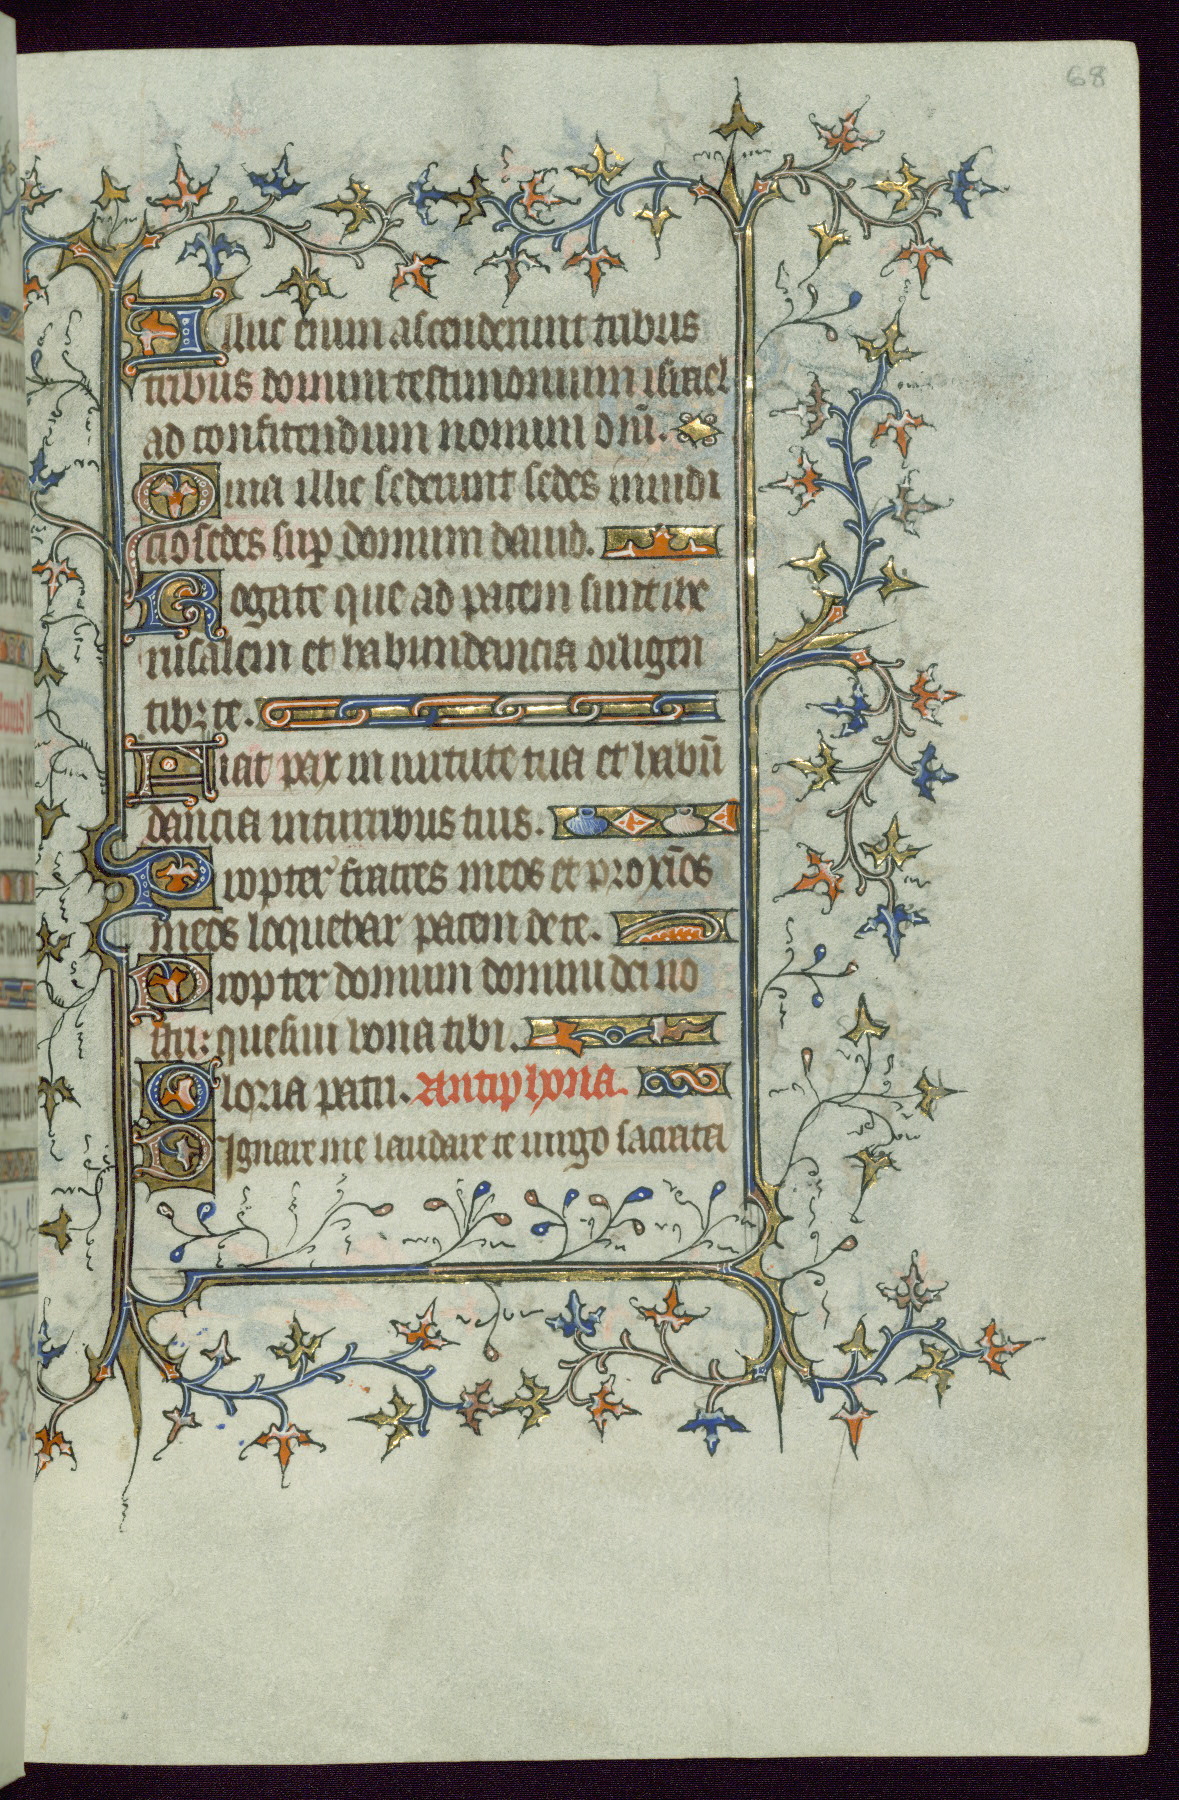 68
Illuc enim ascenderunt tribus
tribus domini testimonium israel
ad confitendum nomini dñi.
Quia illic sederunt sedes in iudi
cio sedes sup domum dauid.
Rogate que ad pacem sunt ihe
rusalem et habundancia diligen
tibꝫ te.
Fiat pax in uirtute tua et habū
dancia in turribus tuis.
Propter fratres meos et proxīos
meos loquebar pacem de te.
Propter domum domini dei no
stri: quesiui bona tibi.
Gloria patri. Antiphona.
Dignare me laudare te uirgo sacrata